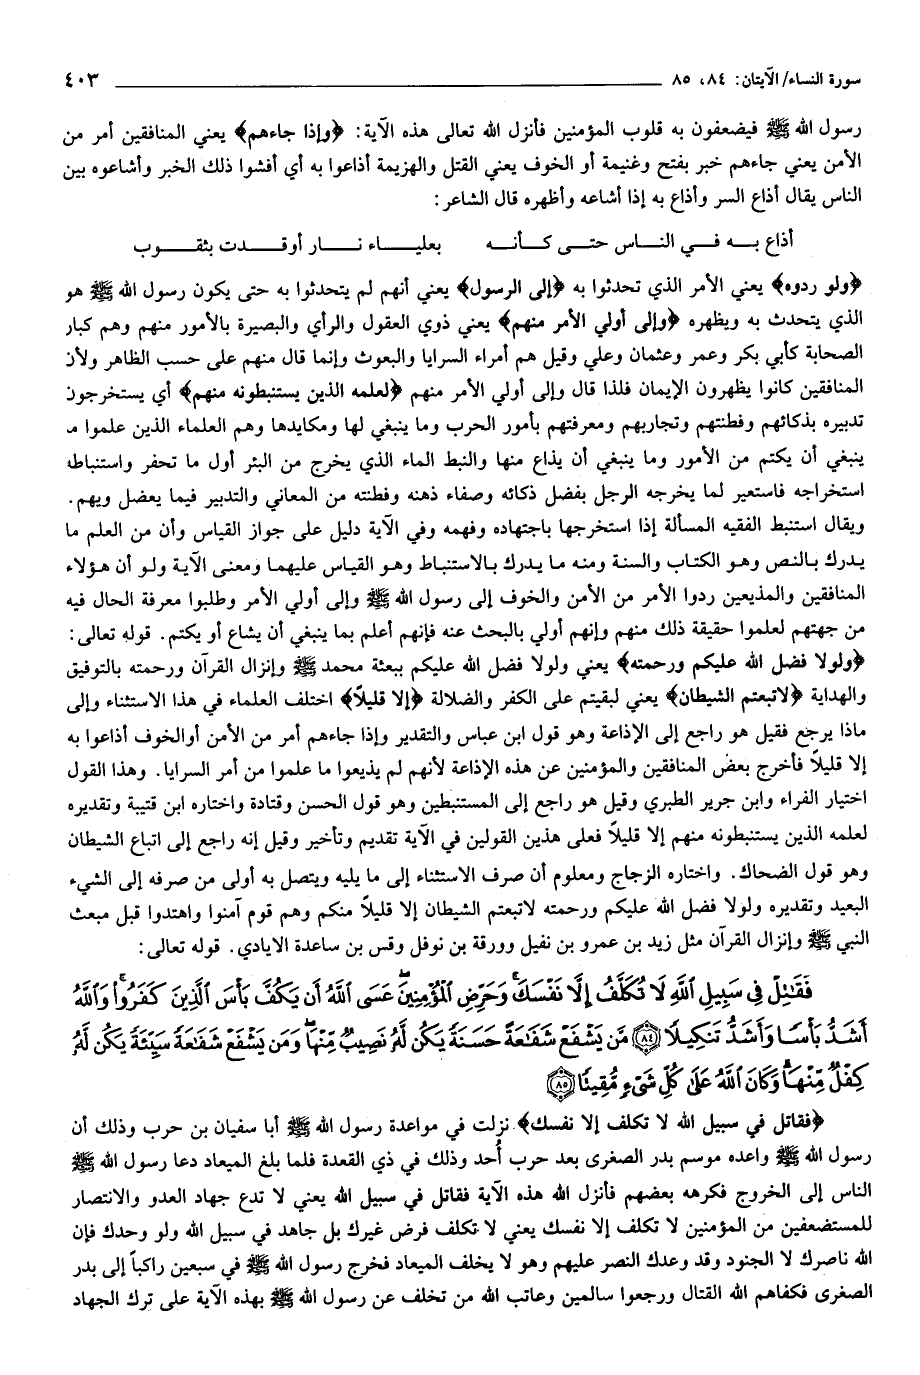 سورة النساء/ الآيتان: ٨٤، ٨٥ ٤٠٣
رسول الله ﷺ فيضعفون به قلوب المؤمنين فأنزل الله تعالى هذه الآية: ﴿وإذا جاءهم﴾ يعني المنافقين أمر من
الأمن يعني جاءهم خبر بفتح وغنيمة أو الخوف يعني القتل والهزيمة أذاعوا به أي أفشوا ذلك الخبر وأشاعوه بين
الناس يقال أذاع السر وأذاع به إذا أشاعه وأظهره قال الشاعر:
أذاع بـه فـي النـاس حتـى كـأنـه بعليـاء نـار أوقـدت بثقـوب
﴿ولو ردوه﴾ يعني الأمر الذي تحدثوا به ﴿إلى الرسول﴾ يعني أنهم لم يتحدثوا به حتى يكون رسول الله ﷺ هو
الذي يتحدث به ويظهره ﴿وإلى أولي الأمر منهم﴾ يعني ذوي العقول والرأي والبصيرة بالأمور منهم وهم كبار
الصحابة كأبي بكر وعمر وعثمان وعلي وقيل هم أمراء السرايا والبعوث وإنما قال منهم على حسب الظاهر ولأن
المنافقين كانوا يظهرون الإيمان فلذا قال وإلى أولي الأمر منهم ﴿لعلمه الذين يستنبطونه منهم﴾ أي يستخرجون
تدبيره بذكائهم وفطنتهم وتجاربهم ومعرفتهم بأمور الحرب وما ينبغي لها ومكايدها وهم العلماء الذين علموا مـ
ينبغي أن يكتم من الأمور وما ينبغي أن يذاع منها والنبط الماء الذي يخرج من البئر أول ما تحفر واستنباطه
استخراجه فاستعير لما يخرجه الرجل بفضل ذكائه وصفاء ذهنه وفطنته من المعاني والتدبير فيما يعضل ويهم.
ويقال استنبط الفقيه المسألة إذا استخرجها باجتهاده وفهمه وفي الآية دليل على جواز القياس وأن من العلم ما
يدرك بالنص وهو الكتاب والسنة ومنه ما يدرك بالاستنباط وهو القياس عليهما ومعنى الآية ولو أن هؤلاء
المنافقين والمذيعين ردوا الأمر من الأمن والخوف إلى رسول الله ﷺ وإلى أولي الأمر وطلبوا معرفة الحال فيه
من جهتهم لعلموا حقيقة ذلك منهم وإنهم أولي بالبحث عنه فإنهم أعلم بما ينبغي أن يشاع أو يكتم. قوله تعالى:
﴿ولولا فضل الله عليكم ورحمته﴾ يعني ولولا فضل الله عليكم ببعثة محمد ﷺ وإنزال القرآن ورحمته بالتوفيق
والهداية ﴿لاتبعتم الشيطان﴾ يعني لبقيتم على الكفر والضلالة ﴿إلا قليلاً﴾ اختلف العلماء في هذا الاستثناء وإلى
ماذا يرجع فقيل هو راجع إلى الإذاعة وهو قول ابن عباس والتقدير وإذا جاءهم أمر من الأمن أوالخوف أذاعوا به
إلا قليلاً فأخرج بعض المنافقين والمؤمنين عن هذه الإذاعة لأنهم لم يذيعوا ما علموا من أمر السرايا. وهذا القول
اختيار الفراء وابن جرير الطبري وقيل هو راجع إلى المستنبطين وهو قول الحسن وقتادة واختاره ابن قتيبة وتقديره
لعلمه الذين يستنبطونه منهم إلا قليلاً فعلى هذين القولين في الآية تقديم وتأخير وقيل إنه راجع إلى اتباع الشيطان
وهو قول الضحاك. واختاره الزجاج ومعلوم أن صرف الاستثناء إلى ما يليه ويتصل به أولى من صرفه إلى الشيء
البعيد وتقديره ولولا فضل الله عليكم ورحمته لاتبعتم الشيطان إلا قليلاً منكم وهم قوم آمنوا واهتدوا قبل مبعث
النبي ﷺ وإنزال القرآن مثل زيد بن عمرو بن نفيل وورقة بن نوفل وقس بن ساعدة الايادي. قوله تعالى:
فَقَٰتِلْ فِي سَبِيلِ ٱللَّهِ لَا تُكَلَّفُ إِلَّا نَفْسَكَۚ وَحَرِّضِ ٱلْمُؤْمِنِينَۖ عَسَى ٱللَّهُ أَن يَكُفَّ بَأْسَ ٱلَّذِينَ كَفَرُوا۟ۚ وَٱللَّهُ
أَشَدُّ بَأْسًا وَأَشَدُّ تَنكِيلًا ﴿٨٤﴾ مَّن يَشْفَعْ شَفَٰعَةً حَسَنَةً يَكُن لَّهُۥ نَصِيبٌ مِّنْهَاۖ وَمَن يَشْفَعْ شَفَٰعَةً سَيِّئَةً يَكُن لَّهُۥ
كِفْلٌ مِّنْهَاۗ وَكَانَ ٱللَّهُ عَلَىٰ كُلِّ شَىْءٍ مُّقِيتًا ﴿٨٥﴾
﴿فقاتل في سبيل الله لا تكلف إلا نفسك﴾ نزلت في مواعدة رسول الله ﷺ أبا سفيان بن حرب وذلك أن
رسول الله ﷺ واعده موسم بدر الصغرى بعد حرب أُحد وذلك في ذي القعدة فلما بلغ الميعاد دعا رسول الله ﷺ
الناس إلى الخروج فكرهه بعضهم فأنزل الله هذه الآية فقاتل في سبيل الله يعني لا تدع جهاد العدو والانتصار
للمستضعفين من المؤمنين لا تكلف إلا نفسك يعني لا تكلف فرض غيرك بل جاهد في سبيل الله ولو وحدك فإن
الله ناصرك لا الجنود وقد وعدك النصر عليهم وهو لا يخلف الميعاد فخرج رسول الله ﷺ في سبعين راكباً إلى بدر
الصغرى فكفاهم الله القتال ورجعوا سالمين وعاتب الله من تخلف عن رسول الله ﷺ بهذه الآية على ترك الجهاد